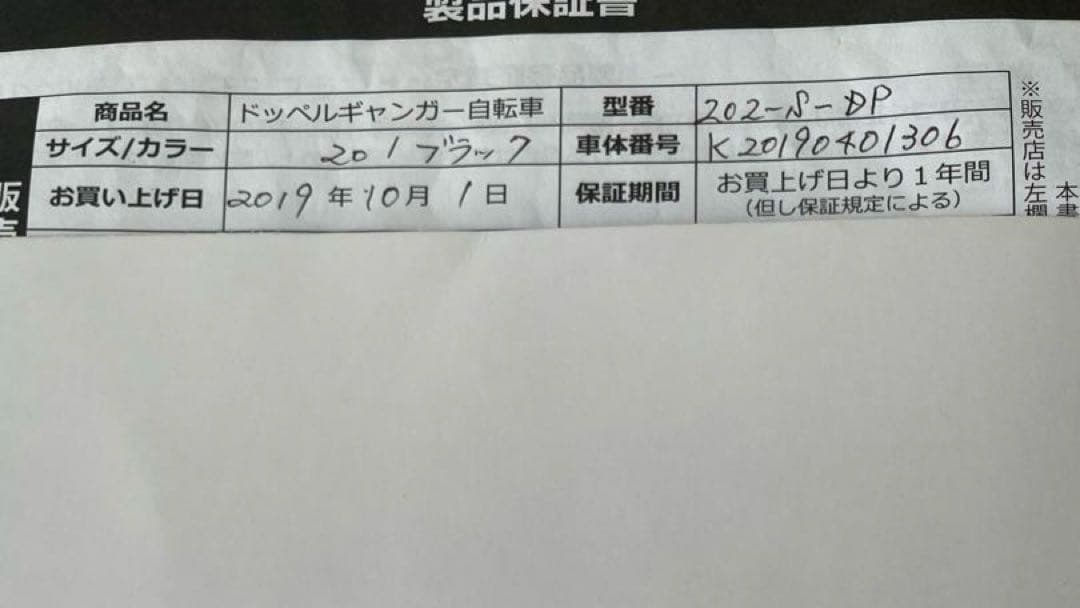 製品保証書
商品名 ドッペルギャンガー自転車 型番 202-S-DP
サイズ/カラー 20 / ブラック 車体番号 K20190401306
お買い上げ日 2019年10月1日 保証期間 お買上げ日より1年間
(但し保証規定による)
※販売店は左欄
本書
販